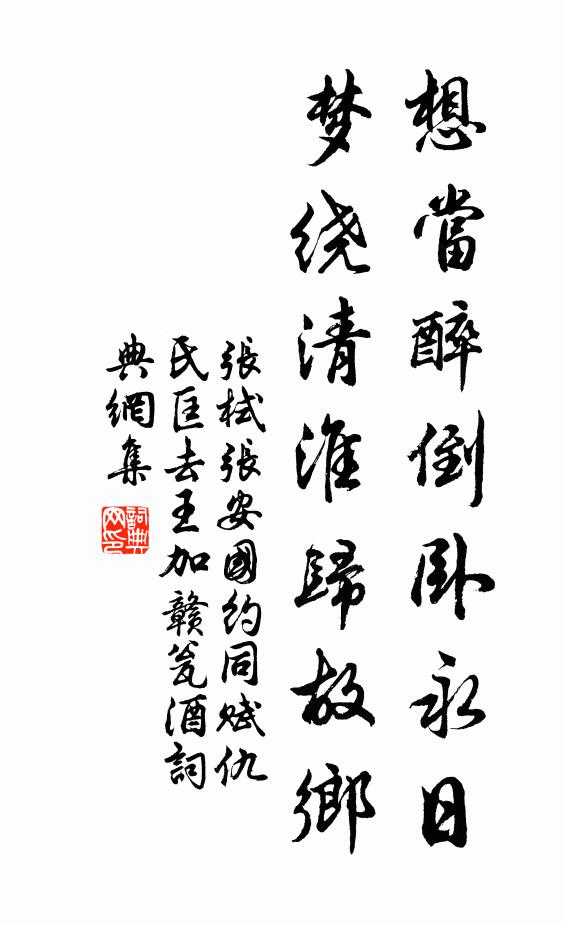 想當醉倒卧永日
梦绕清淮歸故鄉
張栻張安國約同赋仇
氏匡去王加贛瓮酒詞
典網集
詞典网印